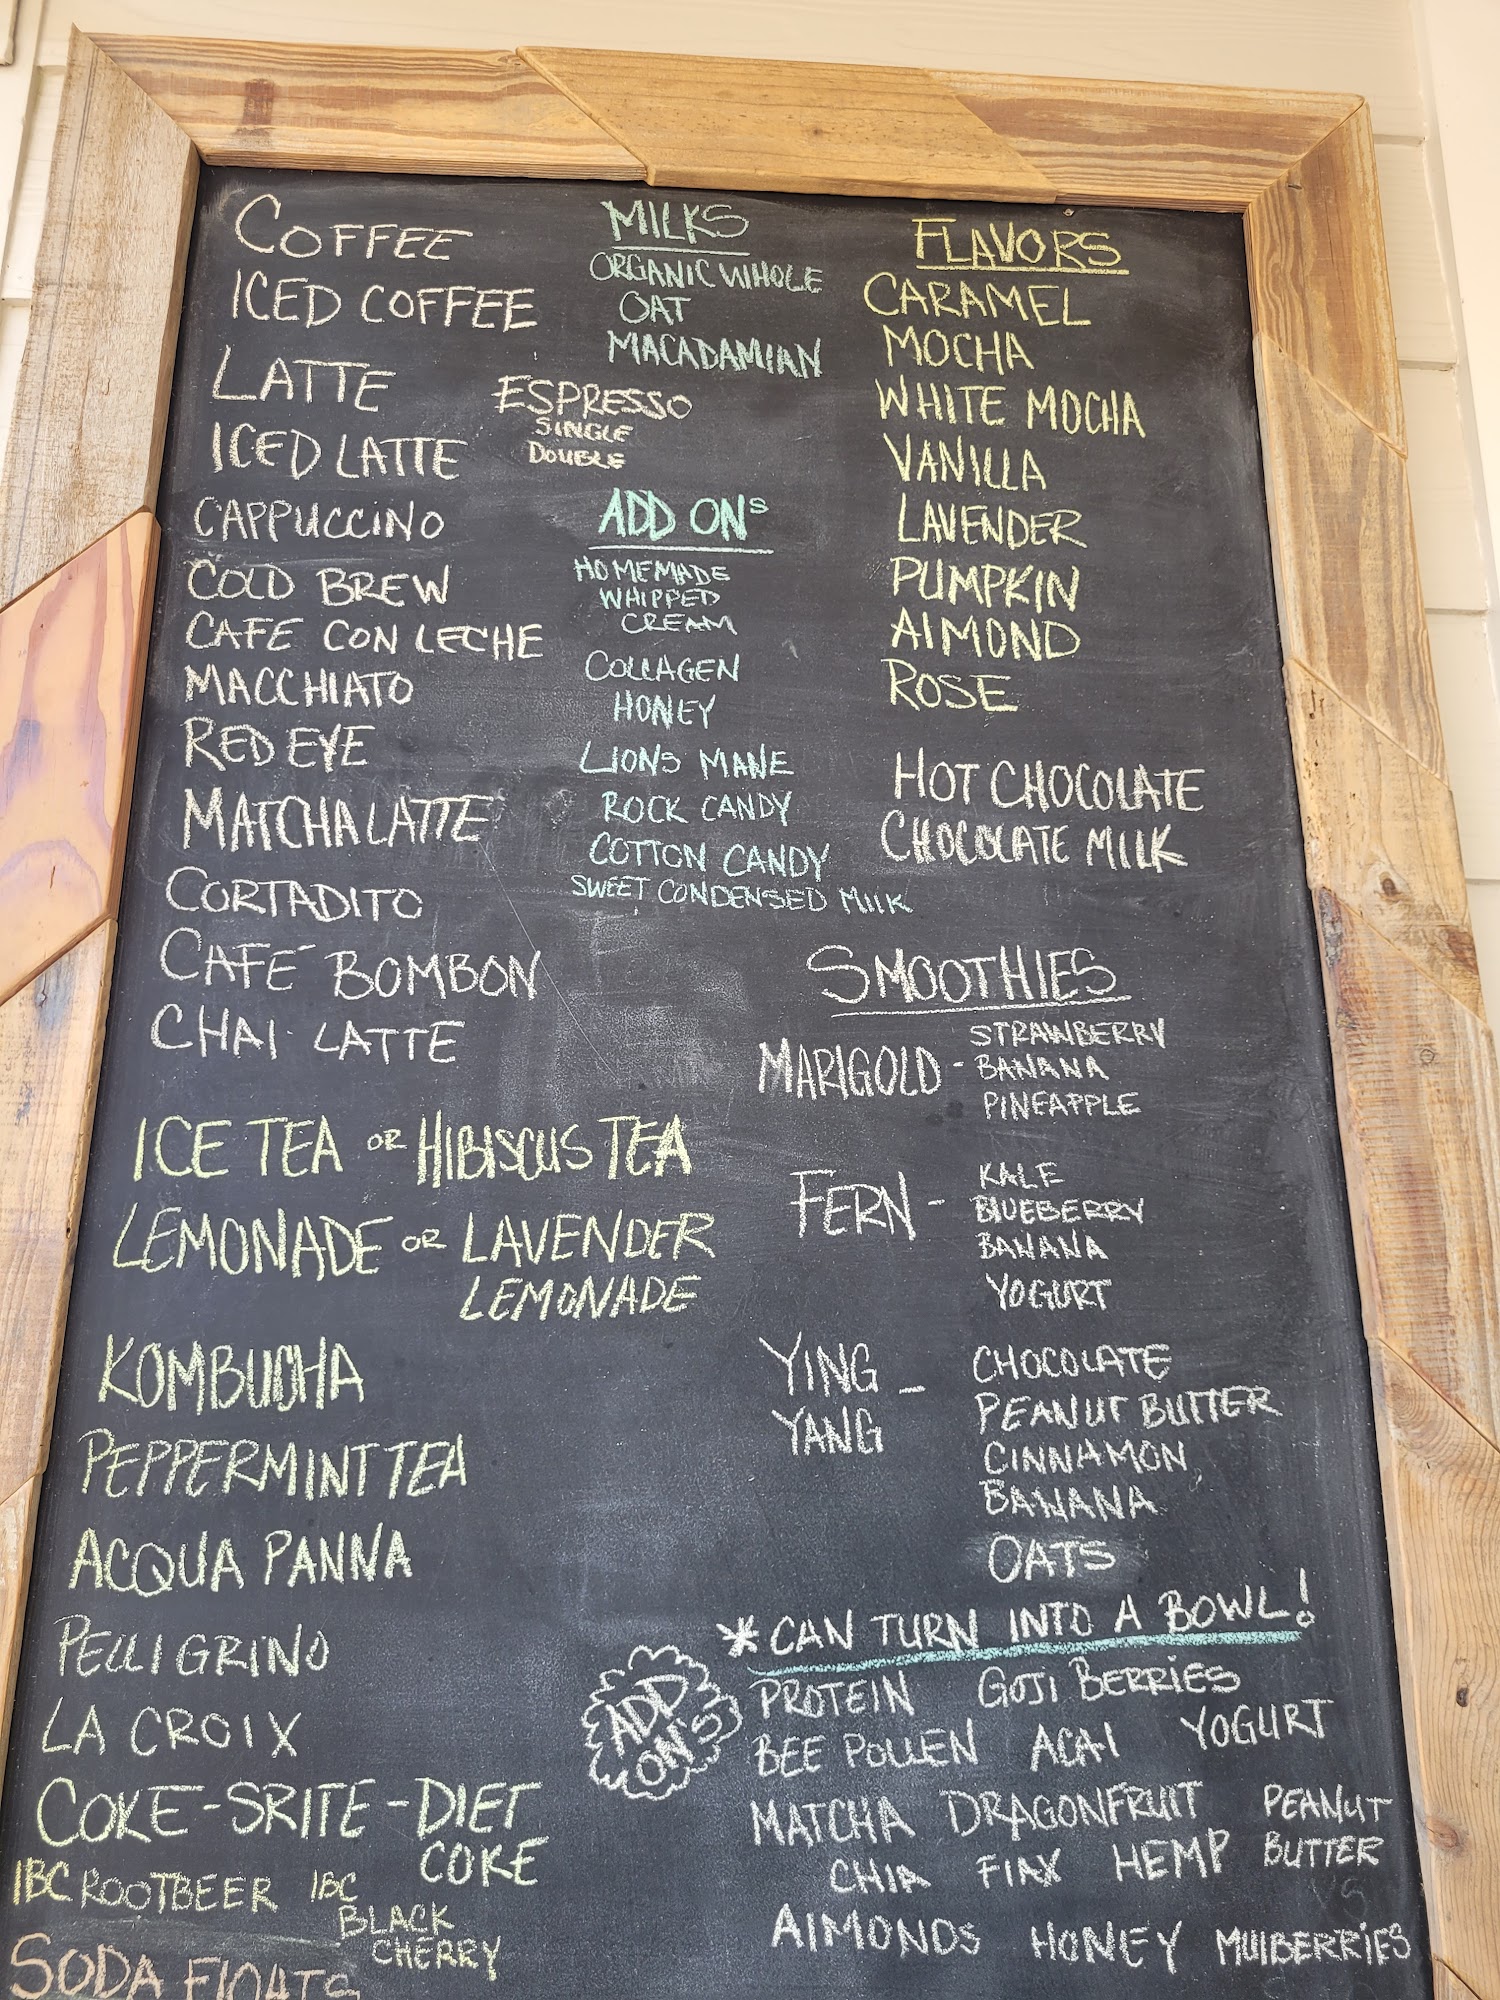 COFFEE
ICED COFFEE
LATTE
ICED LATTE
CAPPUCCINO
COLD BREW
CAFE CON LECHE
MACCHIATO
RED EYE
MATCHA LATTE
CORTADITO
CAFÉ BOMBON
CHAI LATTE
MILKS
ORGANIC WHOLE
OAT
MACADAMIAN
ESPRESSO
SINGLE
DOUBLE
ADD ONS
HOMEMADE
WHIPPED
CREAM
COLLAGEN
HONEY
LIONS MANE
ROCK CANDY
COTTON CANDY
SWEET CONDENSED MILK
FLAVORS
CARAMEL
MOCHA
WHITE MOCHA
VANILLA
LAVENDER
PUMPKIN
ALMOND
ROSE
HOT CHOCOLATE
CHOCOLATE MILK
ICE TEA OR HIBISCUS TEA
LEMONADE OR LAVENDER
LEMONADE
KOMBUCHA
PEPPERMINT TEA
ACQUA PANNA
PELLIGRINO
LA CROIX
COKE-SRITE-DIET
COKE
IBC ROOTBEER IBC
BLACK
CHERRY
SODA FLOATS
SMOOTHIES
MARIGOLD - STRAWBERRY
BANANA
PINEAPPLE
FERN - KALE
BLUEBERRY
BANANA
YOGURT
YING - CHOCOLATE
YANG PEANUT BUTTER
CINNAMON
BANANA
OATS
*CAN TURN INTO A BOWL!
ADD
ON'S
PROTEIN GOJI BERRIES
BEE POLLEN ACAI YOGURT
MATCHA DRAGONFRUIT PEANUT
CHIA FLAX HEMP BUTTER
ALMONDS HONEY MULBERRIES